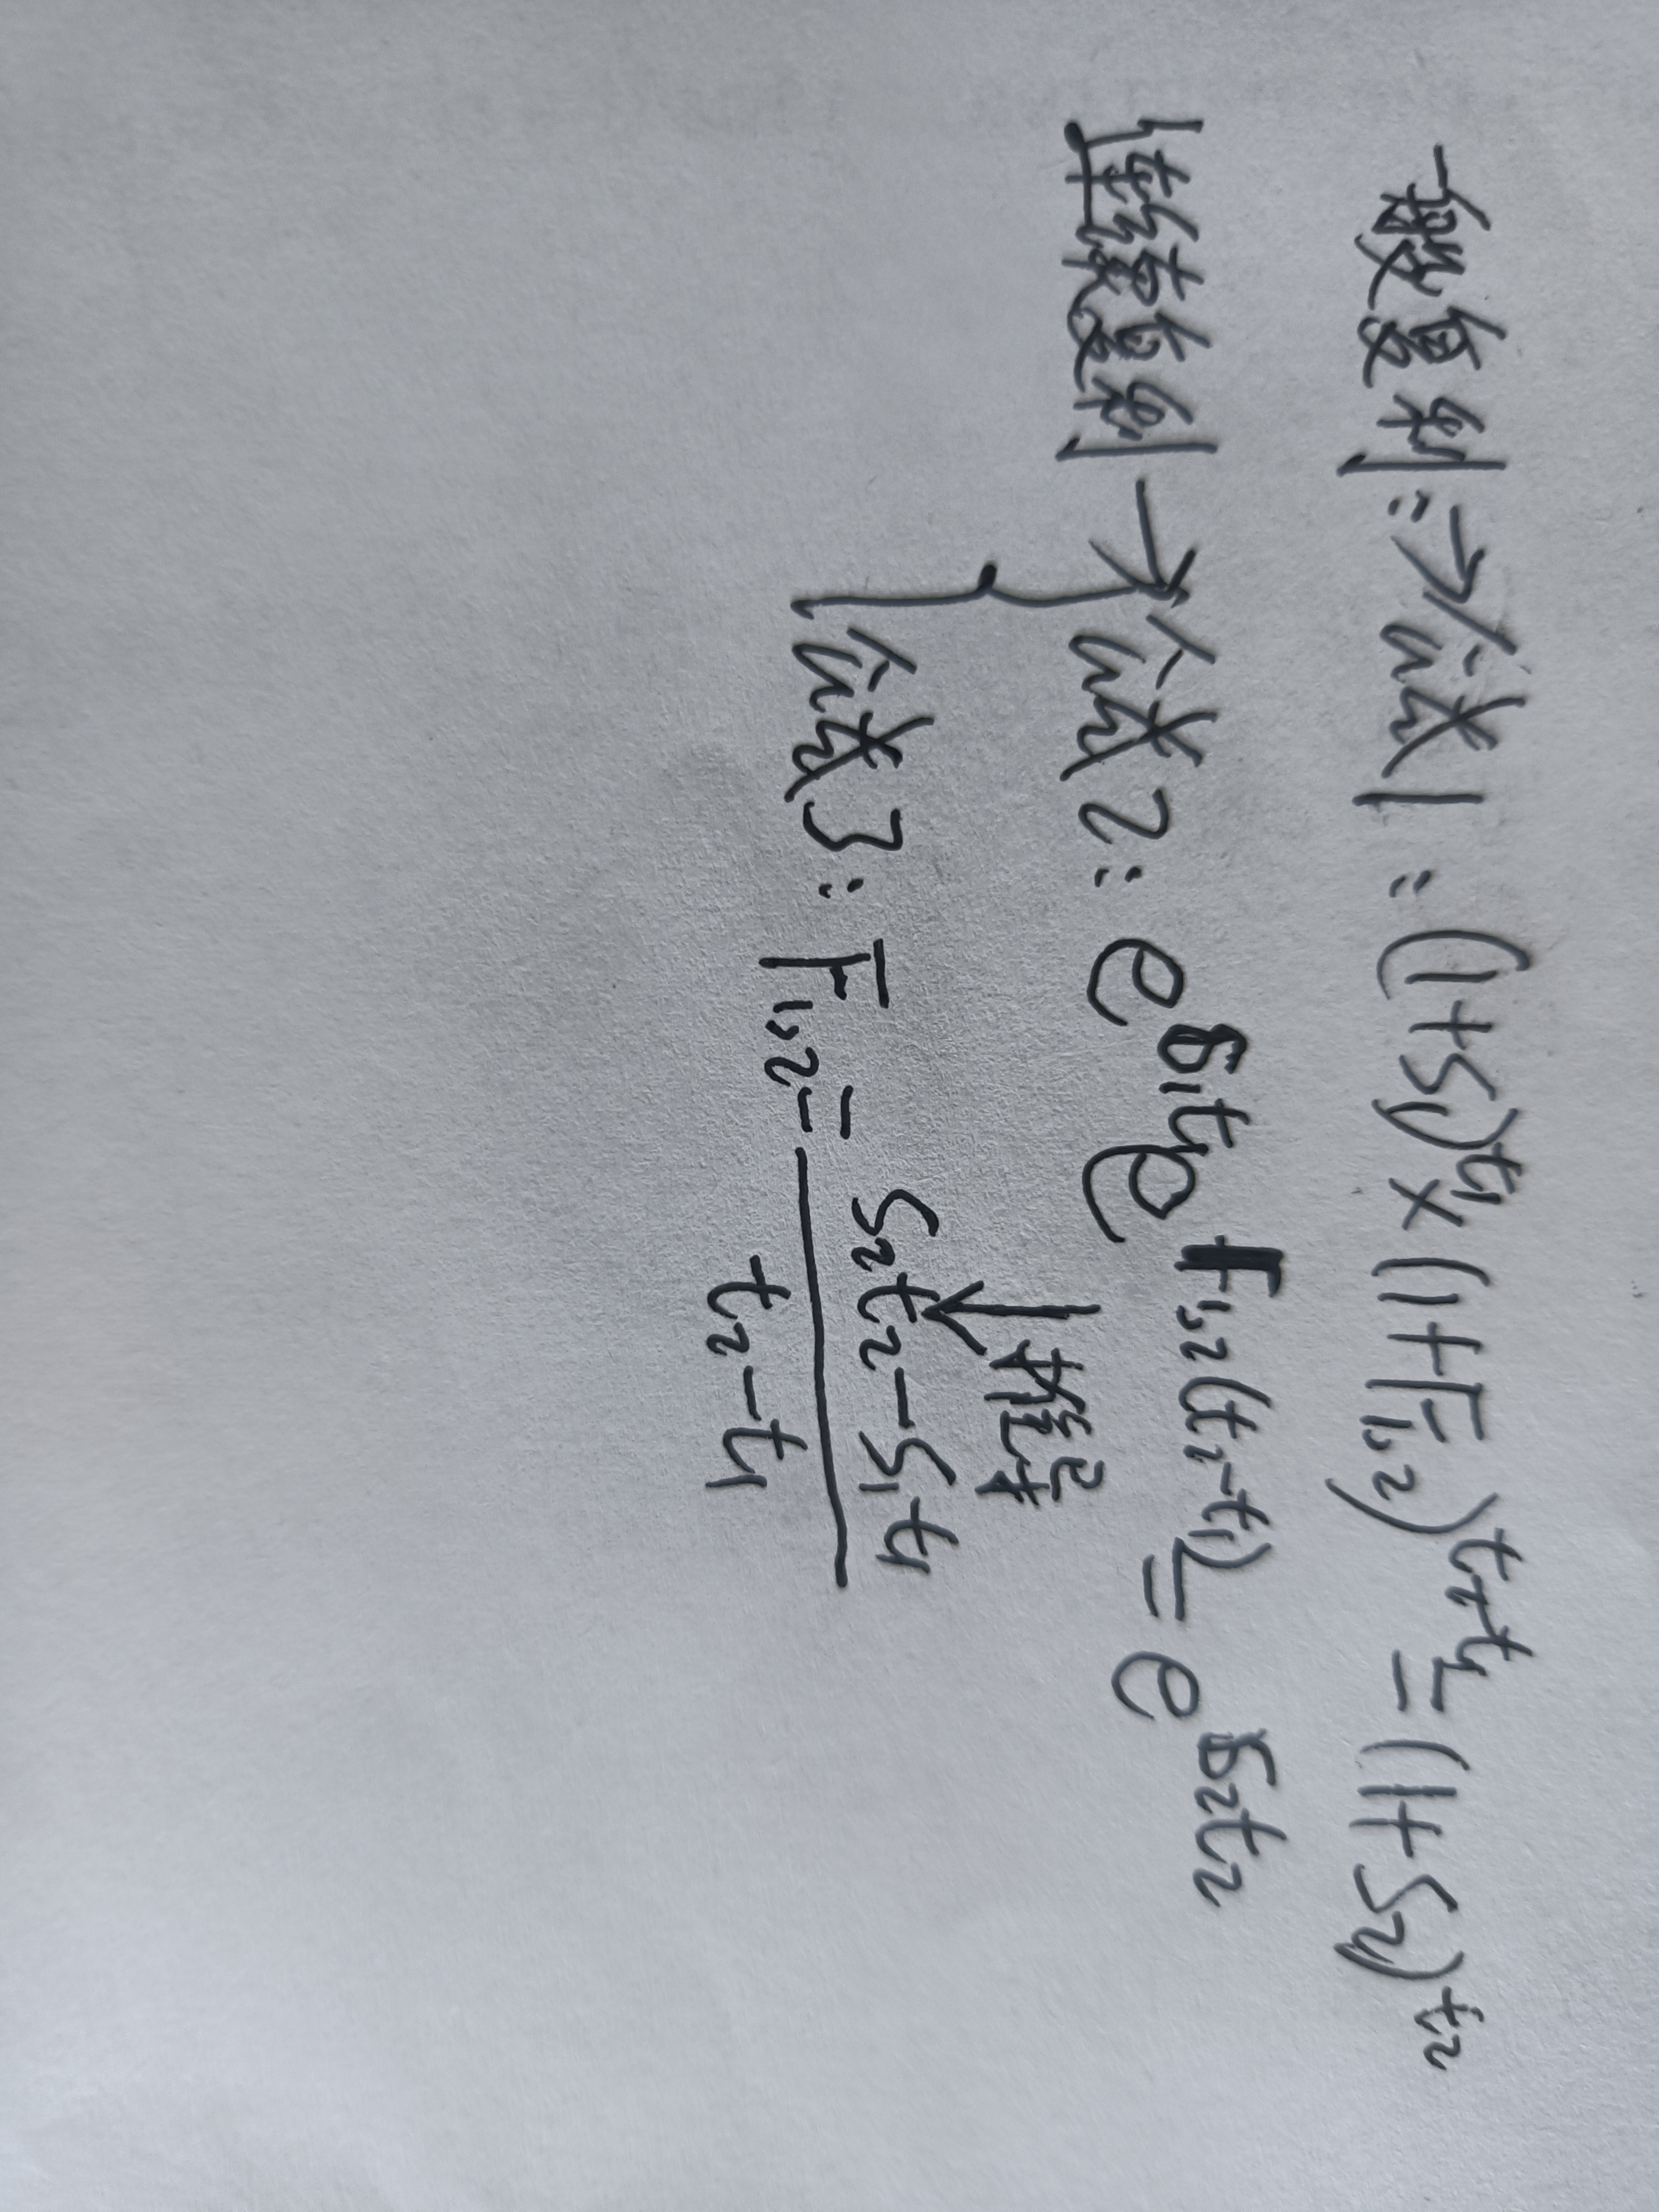 一般复利:→公式1:(1+S₁)^t₁×(1+F₁,₂)^t₂-t₁=(1+S₂)^t₂
连续复利→公式2:e^S₁t₁e^F₁,₂(t₂-t₁)=e^S₂t₂
↓推导
公式3:F₁,₂=S₂t₂-S₁t₁
t₂-t₁